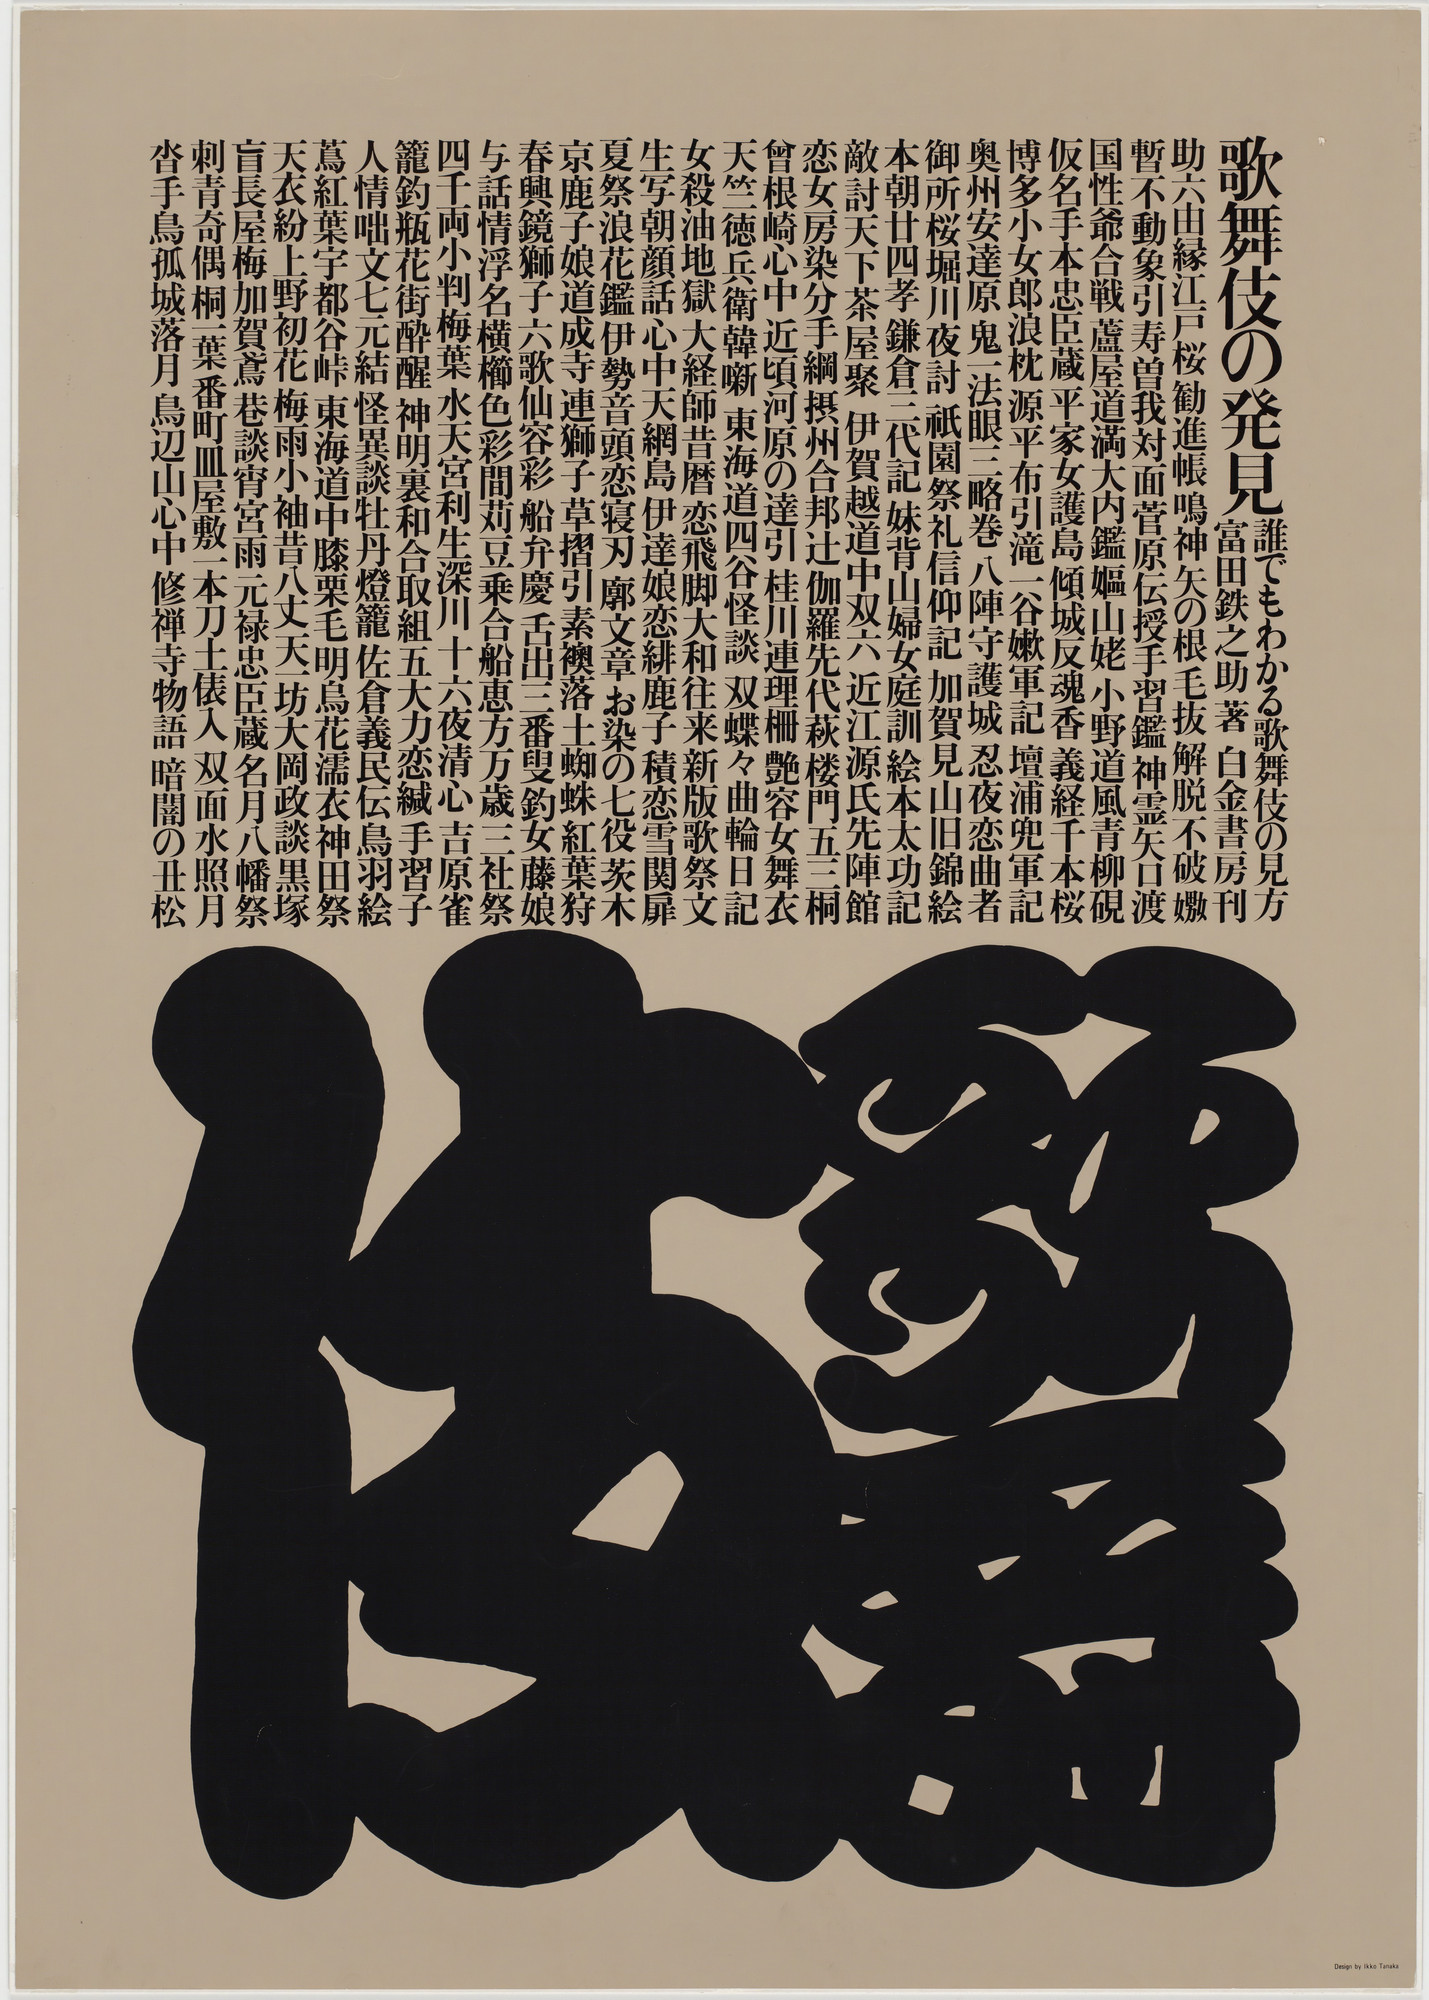 歌舞伎の発見
誰でもわかる歌舞伎の見方
富田鉄之助著 白金書房刊
助六由縁江戸桜 勧進帳 鳴神 矢の根 毛抜 解脱 不破 嫐
暫 不動 象引 寿曽我対面 菅原伝授手習鑑 神霊矢口渡
国性爺合戦 蘆屋道満大内鑑 嫗山姥 小野道風青柳硯
仮名手本忠臣蔵 平家女護島 傾城反魂香 義経千本桜
博多小女郎浪枕 源平布引滝 一谷嫩軍記 壇浦兜軍記
奥州安達原 鬼一法眼三略巻 八陣守護城 忍夜恋曲者
御所桜堀川夜討 祇園祭礼信仰記 加賀見山旧錦絵
本朝廿四孝 鎌倉三代記 妹背山婦女庭訓 絵本太功記
敵討天下茶屋聚 伊賀越道中双六 近江源氏先陣館
恋女房染分手綱 摂州合邦辻 伽羅先代萩 楼門五三桐
曾根崎心中 近頃河原の達引 桂川連理柵 艶容女舞衣
天竺徳兵衛韓噺 東海道四谷怪談 双蝶々曲輪日記
女殺油地獄 大経師昔暦 恋飛脚大和往来 新版歌祭文
生写朝顔話 心中天網島 伊達娘恋緋鹿子 積恋雪関扉
夏祭浪花鑑 伊勢音頭恋寝刃 廓文章 お染の七役 茨木
京鹿子娘道成寺 連獅子 草摺引 素襖落 土蜘蛛 紅葉狩
春興鏡獅子 六歌仙容彩 船弁慶 舌出三番叟 釣女 藤娘
与話情浮名横櫛 色彩間苅豆 乗合船恵方万歳 三社祭
四千両小判梅葉 水天宮利生深川 十六夜清心 吉原雀
籠釣瓶花街酔醒 神明裏和合取組 五大力恋緘 手習子
人情咄文七元結 怪異談牡丹燈籠 佐倉義民伝 鳥羽絵
蔦紅葉宇都谷峠 東海道中膝栗毛 明烏花濡衣 神田祭
天衣紛上野初花 梅雨小袖昔八丈 天一坊大岡政談 黒塚
盲長屋梅加賀鳶 巷談宵宮雨 元禄忠臣蔵 名月八幡祭
刺青奇偶 桐一葉 番町皿屋敷 一本刀土俵入 双面水照月
沓手鳥孤城落月 鳥辺山心中 修禅寺物語 暗闇の丑松
歌舞
伎
Design by Ikko Tanaka